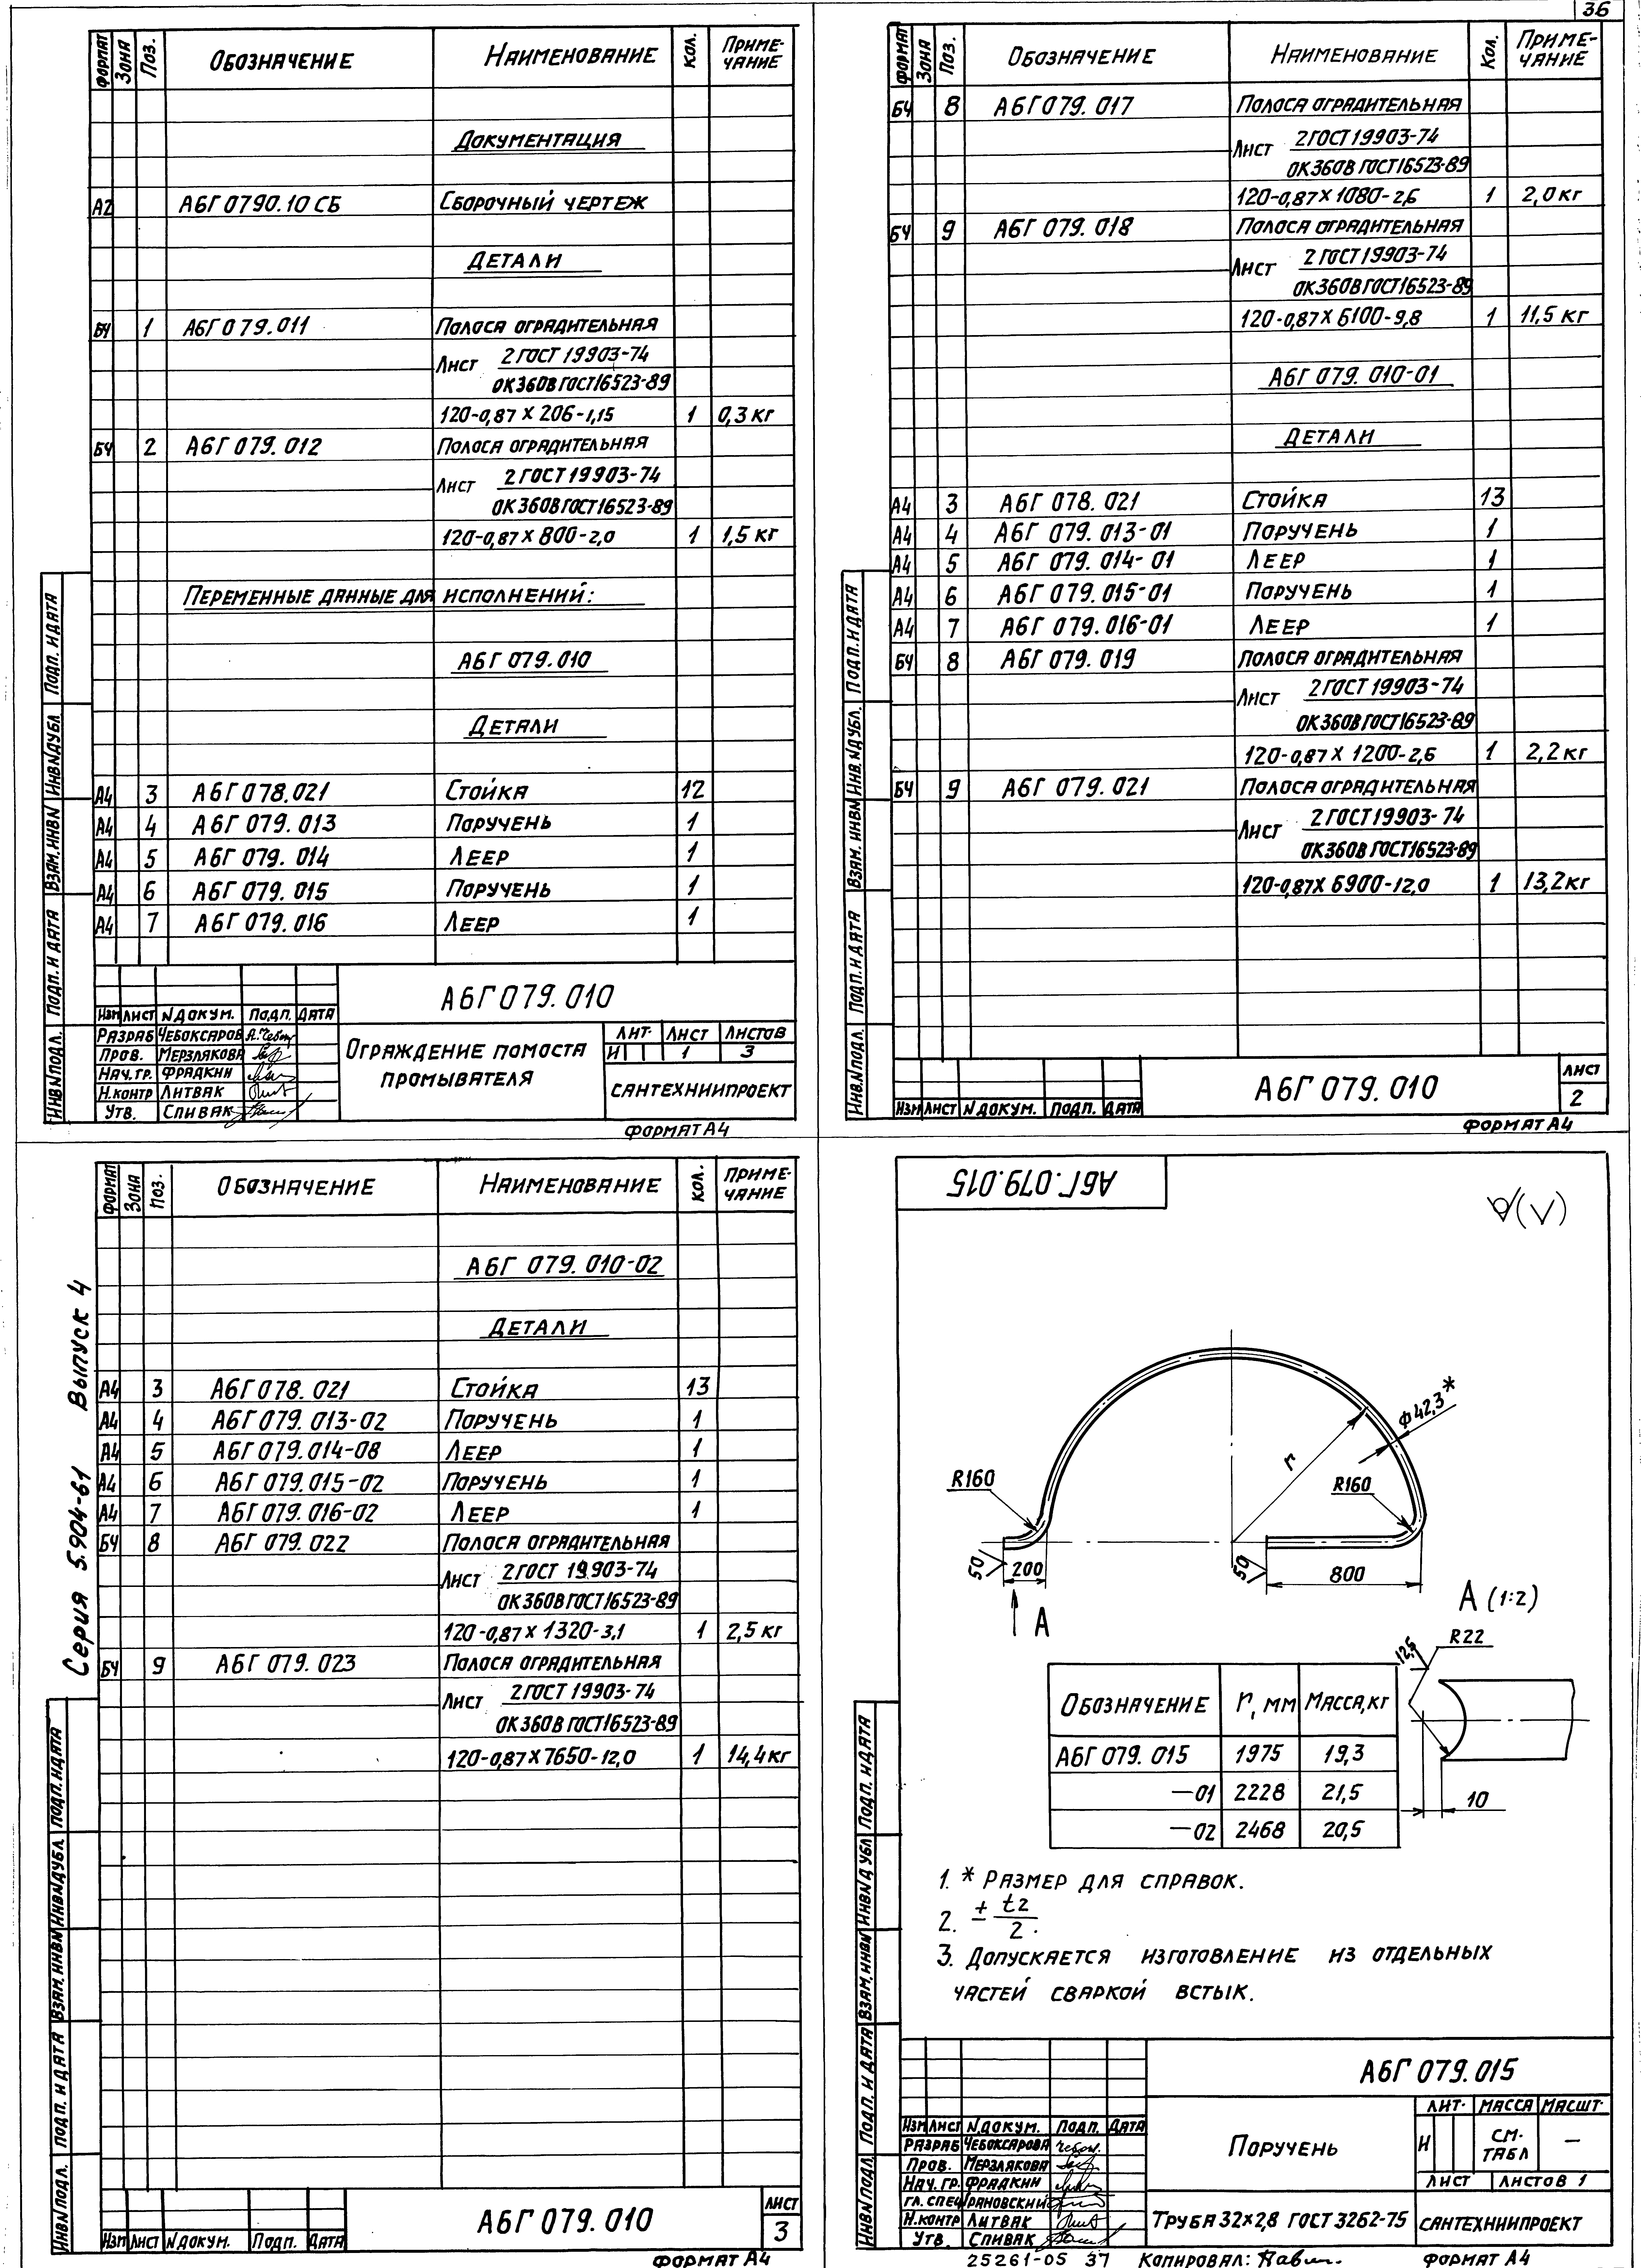 36
ФОРМАТ ЗОНА ПОЗ. ОБОЗНАЧЕНИЕ НАИМЕНОВАНИЕ КОЛ. ПРИМЕ-
ЧАНИЕ
ДОКУМЕНТАЦИЯ
А2 А6Г 0790.10 СБ СБОРОЧНЫЙ ЧЕРТЕЖ
ДЕТАЛИ
БЧ 1 А6Г 079.011 ПОЛОСА ОГРАДИТЕЛЬНАЯ
ЛИСТ 2 ГОСТ 19903-74
ОК360В ГОСТ16523-89
120-0,87 х 206-1,15 1 0,3 кг
БЧ 2 А6Г 079.012 ПОЛОСА ОГРАДИТЕЛЬНАЯ
ЛИСТ 2 ГОСТ 19903-74
ОК360В ГОСТ16523-89
120-0,87 х 800-2,0 1 1,5 кг
ПЕРЕМЕННЫЕ ДАННЫЕ ДЛЯ ИСПОЛНЕНИЙ:
А6Г 079.010
ДЕТАЛИ
А4 3 А6Г 078.021 СТОЙКА 12
А4 4 А6Г 079.013 ПОРУЧЕНЬ 1
А4 5 А6Г 079.014 ЛЕЕР 1
А4 6 А6Г 079.015 ПОРУЧЕНЬ 1
А4 7 А6Г 079.016 ЛЕЕР 1
ИНВ.N ПОДЛ. ПОДП. И ДАТА ВЗАМ. ИНВ N ИНВ.N ДУБЛ ПОДП. И ДАТА
А6Г 079.010
ИЗМ ЛИСТ N ДОКУМ. ПОДП. ДАТА
РАЗРАБ ЧЕБОКСАРОВ
ПРОВ. МЕРЗЛЯКОВА
НАЧ. ГР. ФРАДКИН
Н.КОНТР ЛИТВАК
УТВ. СПИВАК
ОГРАЖДЕНИЕ ПОМОСТА
ПРОМЫВАТЕЛЯ
ЛИТ. ЛИСТ ЛИСТОВ
И 1 3
САНТЕХНИИПРОЕКТ
ФОРМАТ А4
ФОРМАТ ЗОНА ПОЗ. ОБОЗНАЧЕНИЕ НАИМЕНОВАНИЕ КОЛ. ПРИМЕ-
ЧАНИЕ
БЧ 8 А6Г 079.017 ПОЛОСА ОГРАДИТЕЛЬНАЯ
ЛИСТ 2 ГОСТ 19903-74
ОК360В ГОСТ16523-89
120-0,87 х 1080-2,6 1 2,0 кг
БЧ 9 А6Г 079.018 ПОЛОСА ОГРАДИТЕЛЬНАЯ
ЛИСТ 2 ГОСТ 19903-74
ОК360В ГОСТ16523-89
120-0,87 х 6100-9,8 1 11,5 кг
А6Г 079.010-01
ДЕТАЛИ
А4 3 А6Г 078.021 СТОЙКА 13
А4 4 А6Г 079.013-01 ПОРУЧЕНЬ 1
А4 5 А6Г 079.014-01 ЛЕЕР 1
А4 6 А6Г 079.015-01 ПОРУЧЕНЬ 1
А4 7 А6Г 079.016-01 ЛЕЕР 1
БЧ 8 А6Г 079.019 ПОЛОСА ОГРАДИТЕЛЬНАЯ
ЛИСТ 2 ГОСТ 19903-74
ОК360В ГОСТ16523-89
120-0,87 х 1200-2,6 1 2,2 кг
БЧ 9 А6Г 079.021 ПОЛОСА ОГРАДИТЕЛЬНАЯ
ЛИСТ 2 ГОСТ 19903-74
ОК360В ГОСТ16523-89
120-0,87 х 6900-12,0 1 13,2 кг
ИНВ.N ПОДЛ. ПОДП. И ДАТА ВЗАМ. ИНВ N ИНВ.N ДУБЛ. ПОДП. И ДАТА
ИЗМ ЛИСТ N ДОКУМ. ПОДП. ДАТА
А6Г 079.010
ЛИСТ
2
ФОРМАТ А4
СЕРИЯ 5.904-61 ВЫПУСК 4
ФОРМАТ ЗОНА ПОЗ. ОБОЗНАЧЕНИЕ НАИМЕНОВАНИЕ КОЛ. ПРИМЕ-
ЧАНИЕ
А6Г 079.010-02
ДЕТАЛИ
А4 3 А6Г 078.021 СТОЙКА 13
А4 4 А6Г 079.013-02 ПОРУЧЕНЬ 1
А4 5 А6Г 079.014-08 ЛЕЕР 1
А4 6 А6Г 079.015-02 ПОРУЧЕНЬ 1
А4 7 А6Г 079.016-02 ЛЕЕР 1
БЧ 8 А6Г 079.022 ПОЛОСА ОГРАДИТЕЛЬНАЯ
ЛИСТ 2 ГОСТ 19903-74
ОК360В ГОСТ16523-89
120-0,87 х 1320-3,1 1 2,5 кг
БЧ 9 А6Г 079.023 ПОЛОСА ОГРАДИТЕЛЬНАЯ
ЛИСТ 2 ГОСТ 19903-74
ОК360В ГОСТ16523-89
120-0,87 х 7650-12,0 1 14,4 кг
ИНВ.N ПОДЛ. ПОДП. И ДАТА ВЗАМ. ИНВ N ИНВ.N ДУБЛ. ПОДП. И ДАТА
ИЗМ ЛИСТ N ДОКУМ. ПОДП. ДАТА
А6Г 079.010
ЛИСТ
3
ФОРМАТ А4
А6Г. 079.015
R160
r
Ф42,3*
R160
50
200
50
800
А
А (1:2)
12,5
R22
10
ОБОЗНАЧЕНИЕ r, мм МАССА, КГ
А6Г 079.015 1975 19,3
—01 2228 21,5
—02 2468 20,5
1. * РАЗМЕР ДЛЯ СПРАВОК.
2. ± t2/2.
3. ДОПУСКАЕТСЯ ИЗГОТОВЛЕНИЕ ИЗ ОТДЕЛЬНЫХ
ЧАСТЕЙ СВАРКОЙ ВСТЫК.
ИНВ.N ПОДЛ. ПОДП. И ДАТА ВЗАМ. ИНВ N ИНВ.N ДУБЛ ПОДП. И ДАТА
А6Г 079.015
ИЗМ ЛИСТ N ДОКУМ. ПОДП. ДАТА
РАЗРАБ ЧЕБОКСАРОВА
ПРОВ. МЕРЗЛЯКОВА
НАЧ. ГР. ФРАДКИН
ГЛ. СПЕЦ УРАНОВСКИЙ
Н.КОНТР ЛИТВАК
УТВ. СПИВАК
ПОРУЧЕНЬ
ЛИТ. МАССА МАСШТ.
И СМ.
ТАБЛ —
ЛИСТ ЛИСТОВ 1
ТРУБА 32х2,8 ГОСТ 3262-75
САНТЕХНИИПРОЕКТ
25261-05 37 КОПИРОВАЛ: ФОРМАТ А4